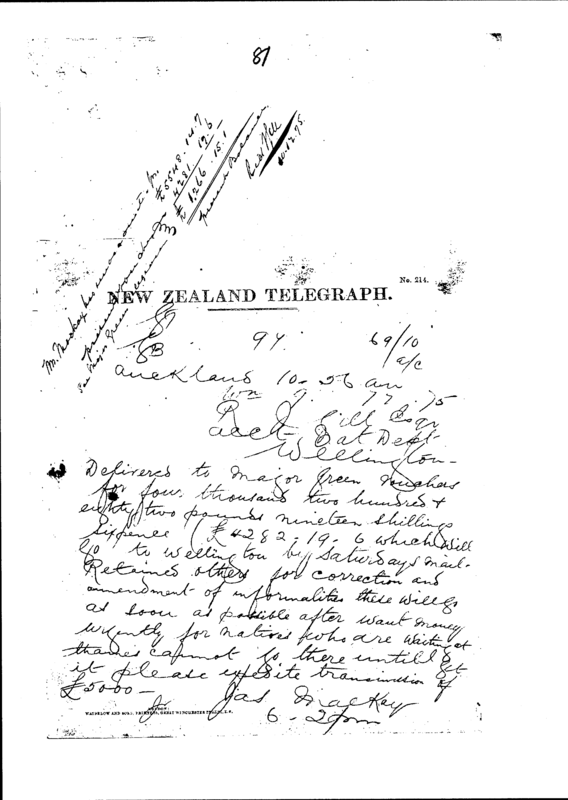 81
Mr. Mackay has
£5548.14.7
4281.19.6
£1266.15.1
present balance
10.12.75
No. 214.
NEW ZEALAND TELEGRAPH.
94 69/10
a/c
Auckland 10-56 am
75
R J Gill Esqr
acct- Nat Dept
Wellington-
Delivered to Major Green Vouchers
for four thousand two hundred &
eighty two pounds nineteen shillings
Sixpence (£4282-19-6 which will
go to Wellington by Saturdays mail-
Retained others for correction and
amendment of informalities these will go
as soon as possible after want money
urgently for natives who are waiting at
thames cannot go there until get
it please expedite transmission of
£5000-
Jas Mackay
WATERLOW AND SONS, PRINTERS, GREAT WINCHESTER STREET, E.C.
6-2pm